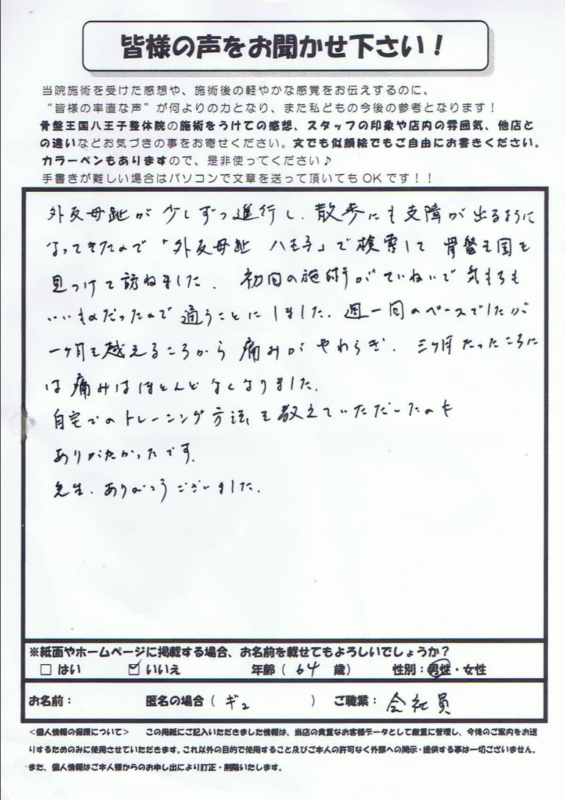 皆様の声をお聞かせ下さい！
当院施術を受けた感想や、施術後の軽やかな感覚をお伝えするのに、
“皆様の率直な声”が何よりの力となり、また私どもの今後の参考となります！
骨盤王国八王子整体院の施術をうけての感想、スタッフの印象や店内の雰囲気、他店と
の違いなどお気づきの事をお寄せください。文でも似顔絵でもご自由にお書きください。
カラーペンもありますので、是非使ってください♪
手書きが難しい場合はパソコンで文章を送って頂いてもOKです！！
外反母趾が少しずつ進行し、散歩にも支障が出るように
なってきたので「外反母趾 八王子」で検索して骨盤王国を
見つけて訪ねました。初回の施術がていねいで気もちも
いいものだったので通うことにしました。週一回のペースでしたが
一ヶ月を越えるころから痛みがやわらぎ、三ヶ月たったころに
は痛みはほとんどなくなりました。
自宅でのトレーニング方法も教えていただいたのも
ありがたかったです。
先生、ありがとうございました。
※紙面やホームページに掲載する場合、お名前を載せてもよろしいでしょうか？
□はい ☑いいえ 年齢（64歳） 性別：男性・女性
お名前： 匿名の場合（ ） ご職業：会社員
＜個人情報の保護について＞ この用紙にご記入いただきました情報は、当店の貴重なお客様データとして厳重に管理し、今後のご案内をお送
りするためのみに使用させていただきます。これ以外の目的で使用すること及びご本人の許可なく外部への開示・提供する事は一切ございません。
また、個人情報はご本人様からのお申し出により訂正・削除いたします。